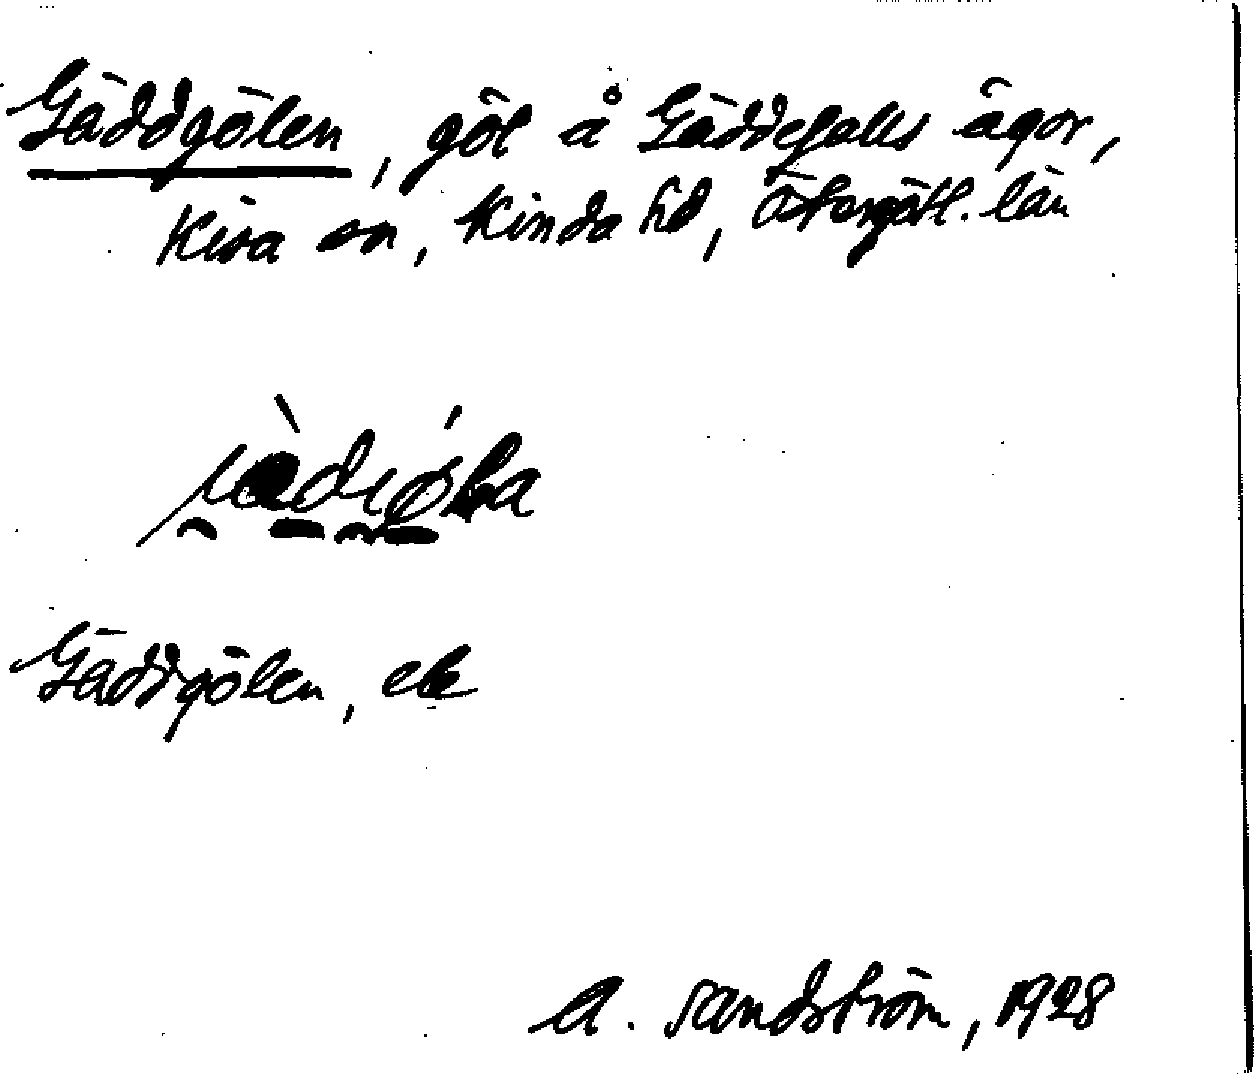 Gäddgölen, göl å Gäddefalls ägor,
Kisa sn, Kinda hd, Östergötl. län
Gäddgölen, ek
A. Sandström, 1928